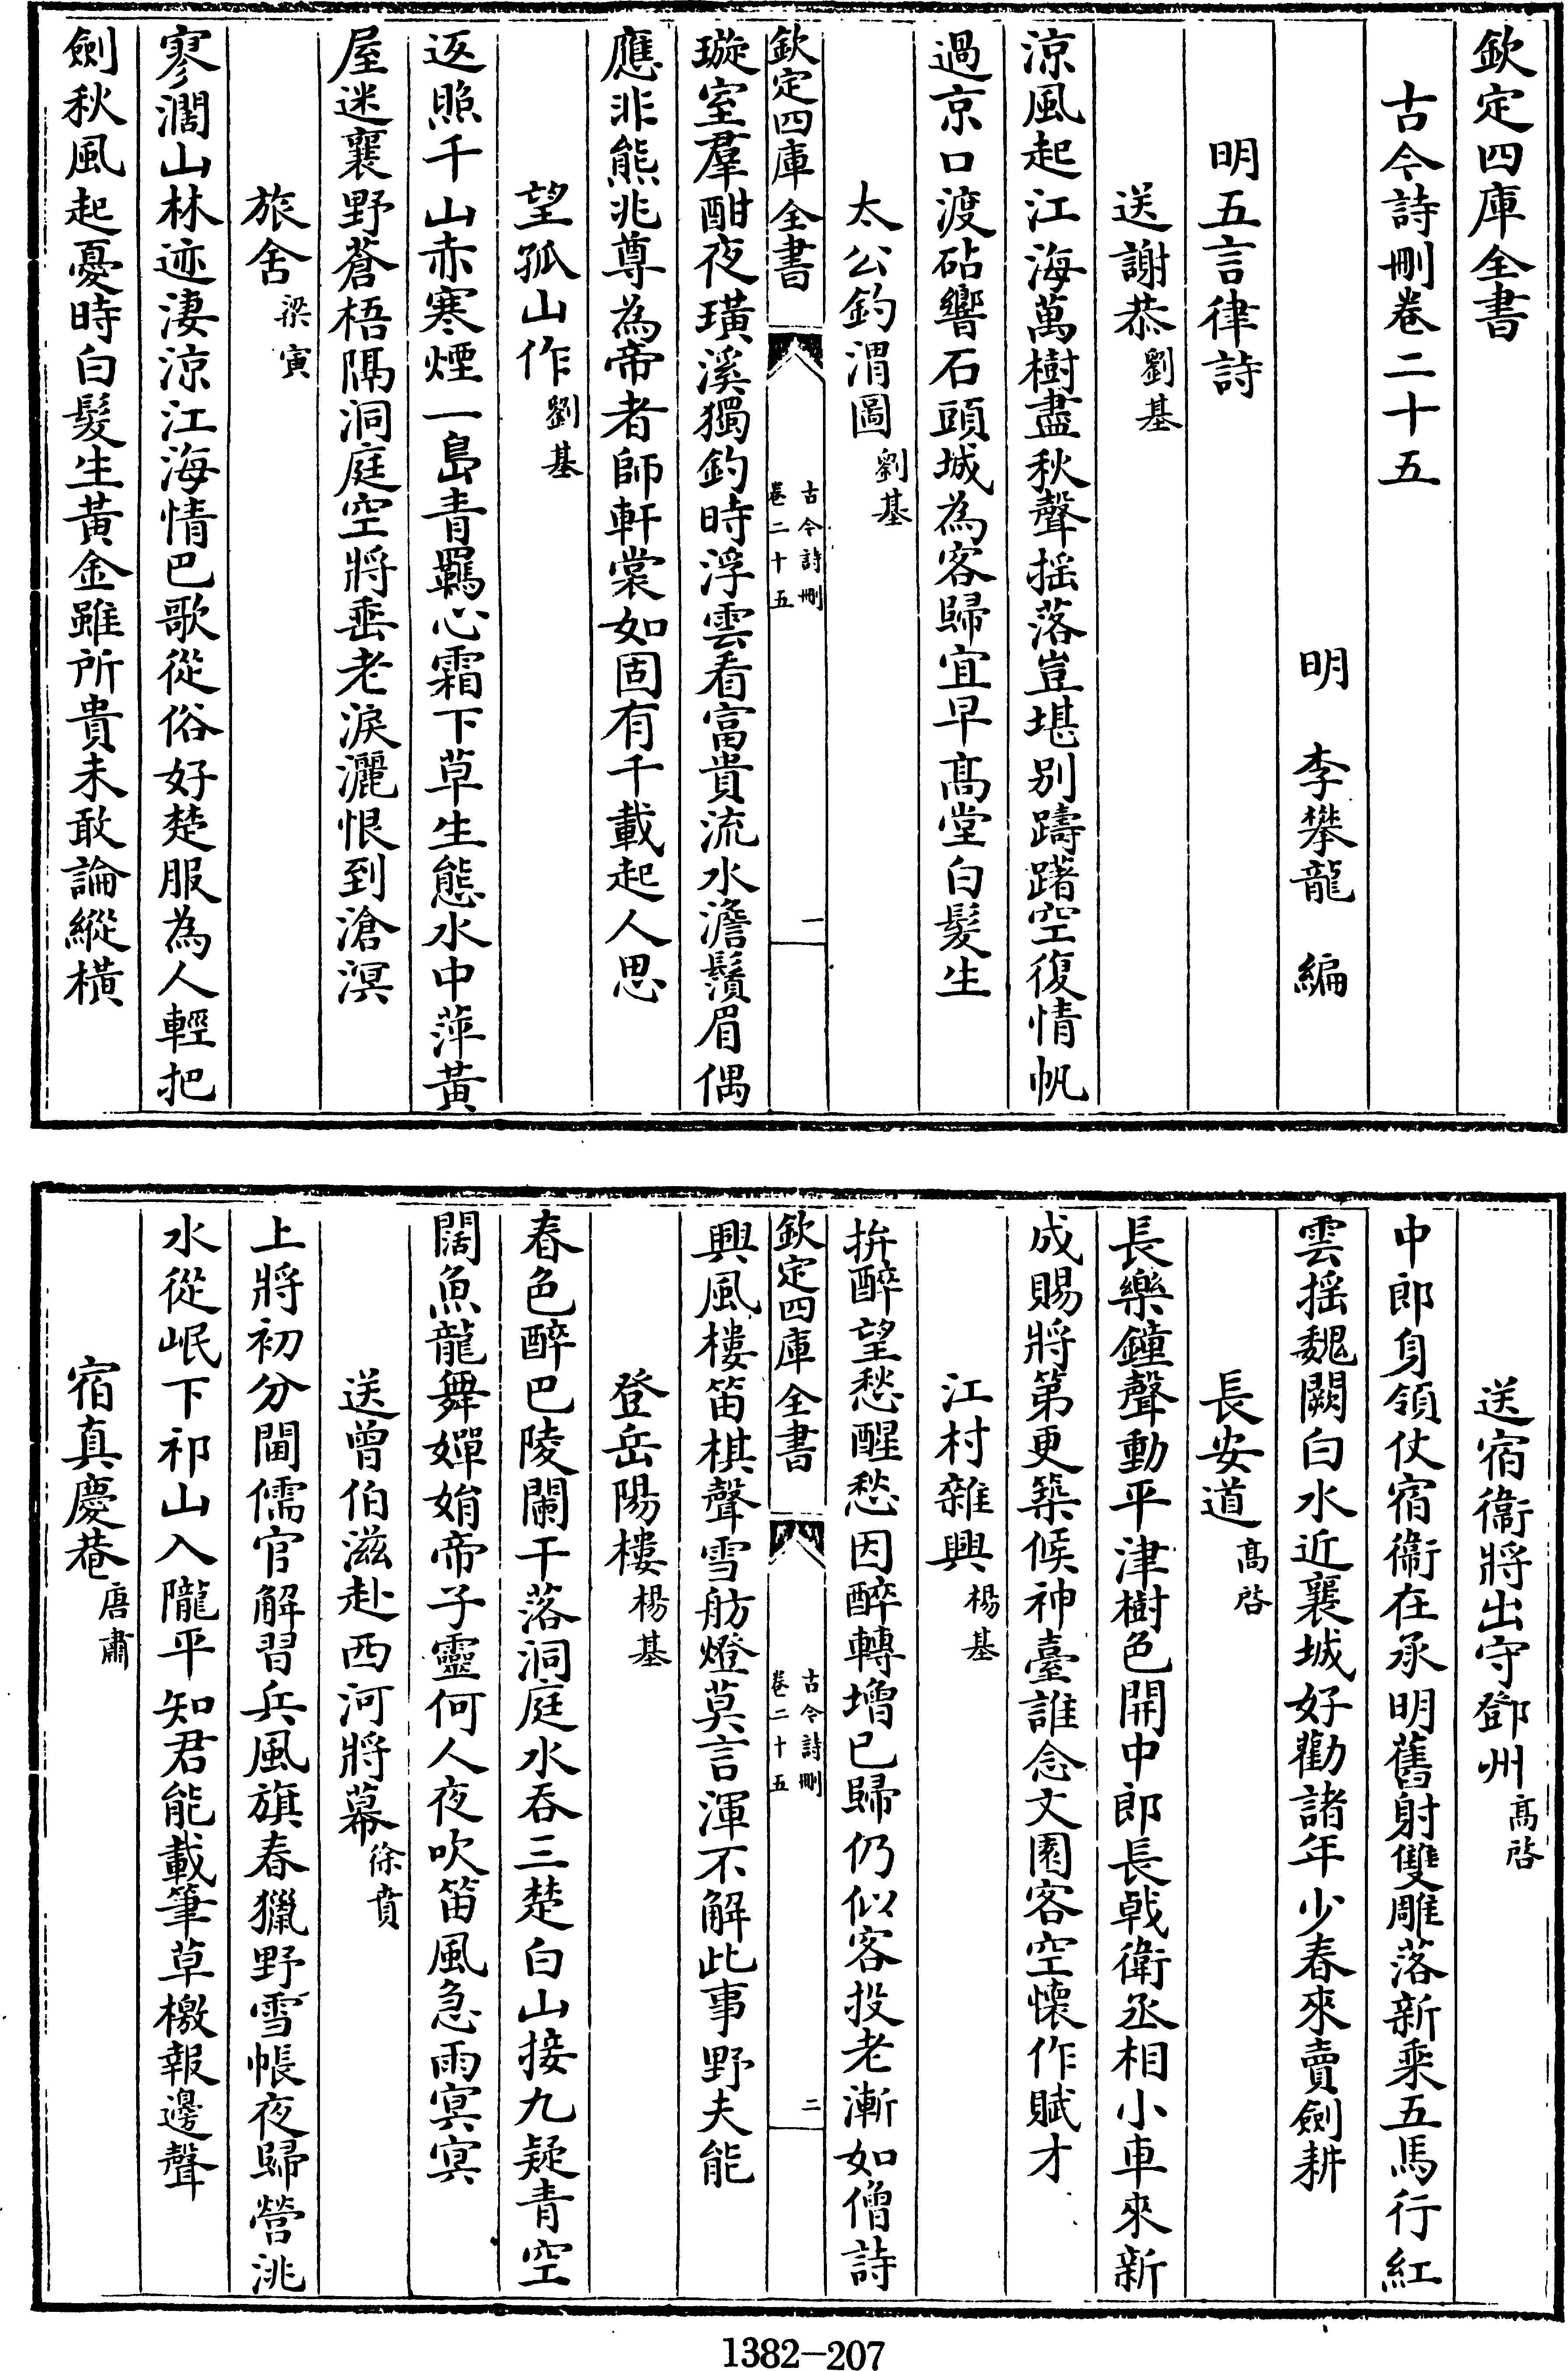 欽定四庫全書
古今詩刪卷二十五
明　李攀龍　編
明五言律詩
送謝恭劉基
涼風起江海萬樹盡秋聲揺落豈堪别躊躇空復情帆
過京口渡砧響石頭城為客歸宜早髙堂白髪生
太公釣渭圖劉基
欽定四庫全書
古今詩刪
卷二十五
一
璇室羣酣夜璜溪獨釣時浮雲看富貴流水澹鬚眉偶
應非熊兆尊為帝者師軒裳如固有千載起人思
望孤山作劉基
返照千山赤寒煙一島青羈心霜下草生態水中萍黃
屋迷襄野蒼梧隔洞庭空將垂老淚灑恨到滄溟
旅舍梁寅
寥濶山林迹淒涼江海情巴歌從俗好楚服為人輕把
劍秋風起憂時白髮生黃金雖所貴未敢論縱橫
送宿衞將出守鄧州髙啓
中郎身領仗宿衞在承明舊射雙雕落新乘五馬行紅
雲揺魏闕白水近襄城好勸諸年少春來賣劍耕
長安道髙啓
長樂鐘聲動平津樹色開中郎長戟衛丞相小車來新
成賜將第更築候神臺誰念文園客空懷作賦才
江村雜興楊基
拚醉望愁醒愁因醉轉增已歸仍似客投老漸如僧詩
欽定四庫全書
古今詩刪
卷二十五
二
興風樓笛棋聲雪舫燈莫言渾不解此事野夫能
登岳陽樓楊基
春色醉巴陵闌干落洞庭水吞三楚白山接九疑青空
闊魚龍舞嬋娟帝子靈何人夜吹笛風急雨冥冥
送曾伯滋赴西河將幕徐賁
上將初分閫儒官解習兵風旗春獵野雪帳夜歸營洮
水從岷下祁山入隴平知君能載筆草檄報邊聲
宿真慶菴唐肅
1382-207